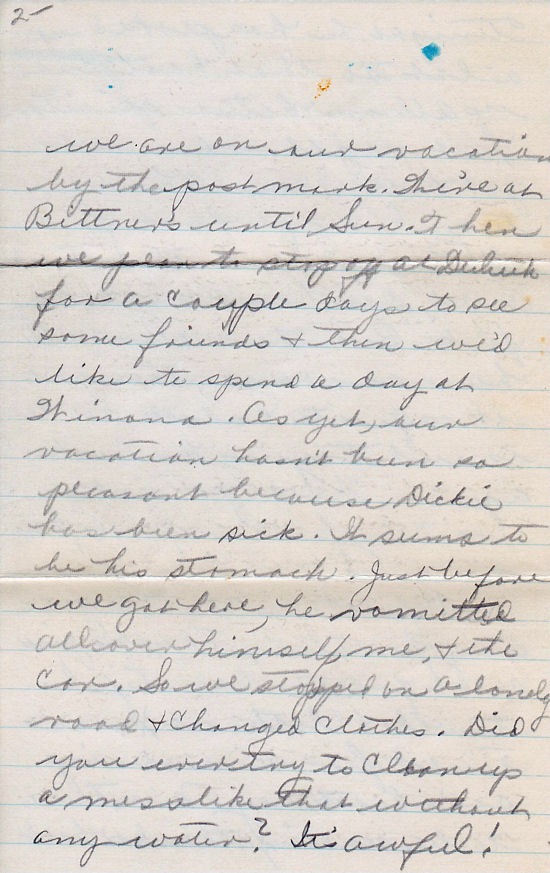 2-
we are on our vacation
by the post mark. We're at
Bittner's until Sun. Then
we plan to stop off at Duluth
for a couple days to see
some friends + then we'd
like to spend a day at
Winona. As yet, our
vacation hasn't been so
pleasant because Dickie
has been sick. It seems to
be his stomach. Just before
we got here, he vomitted
all over himself, me, + the
car. So we stopped on a lonely
road + changed clothes. Did
you ever try to clean up
a mess like that without
any water? It's awful!